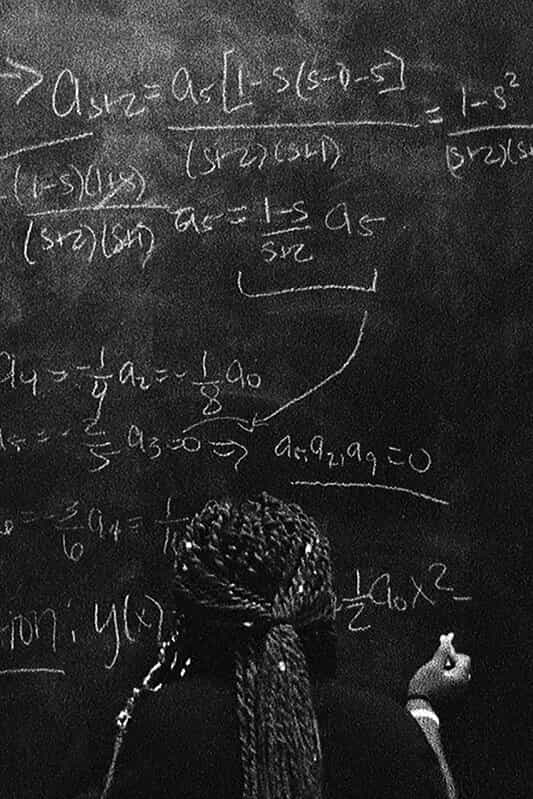 → a_{s+2} = a_s [1-s(s-1)-s] / (s+2)(s+1) = 1-s² / (s+2)(s+
(1-s)(1+s) / (s+2)(s+1) a_s = 1-s / s+2 a_s
a₄ = -1/4 a₂ = -1/8 a₀
= -2/5 a₃ = 0 ⇒ a₅, a₇, a₉ = 0
= -3/6 a₄ = 1/
tion: y(x) + 1/2 a₀x² -